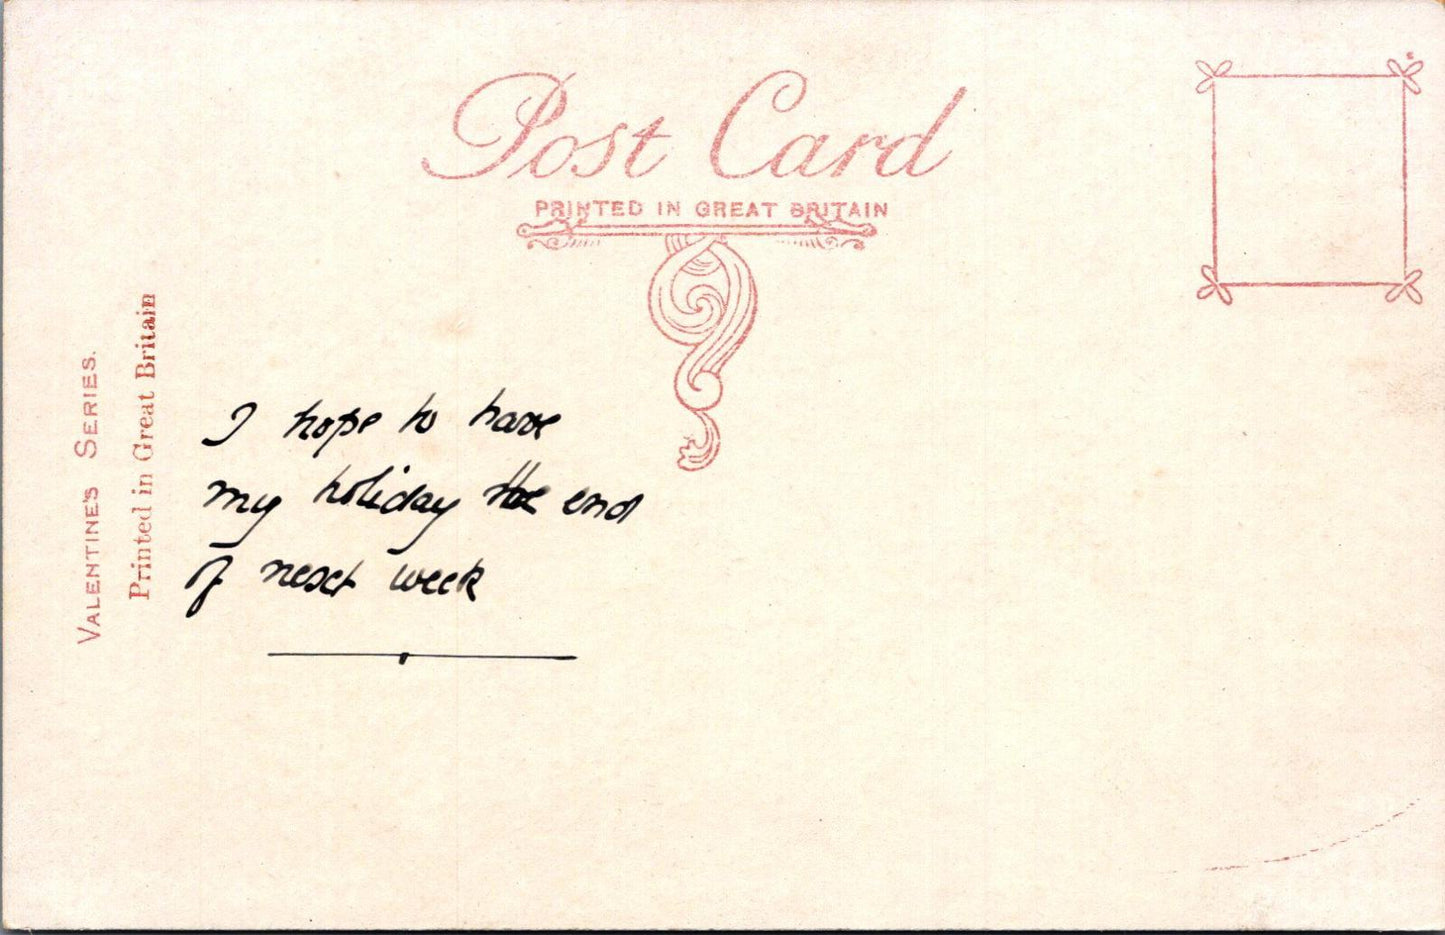 Post Card
PRINTED IN GREAT BRITAIN
VALENTINE'S SERIES.
Printed in Great Britain
I hope to have
my holiday the end
of next week